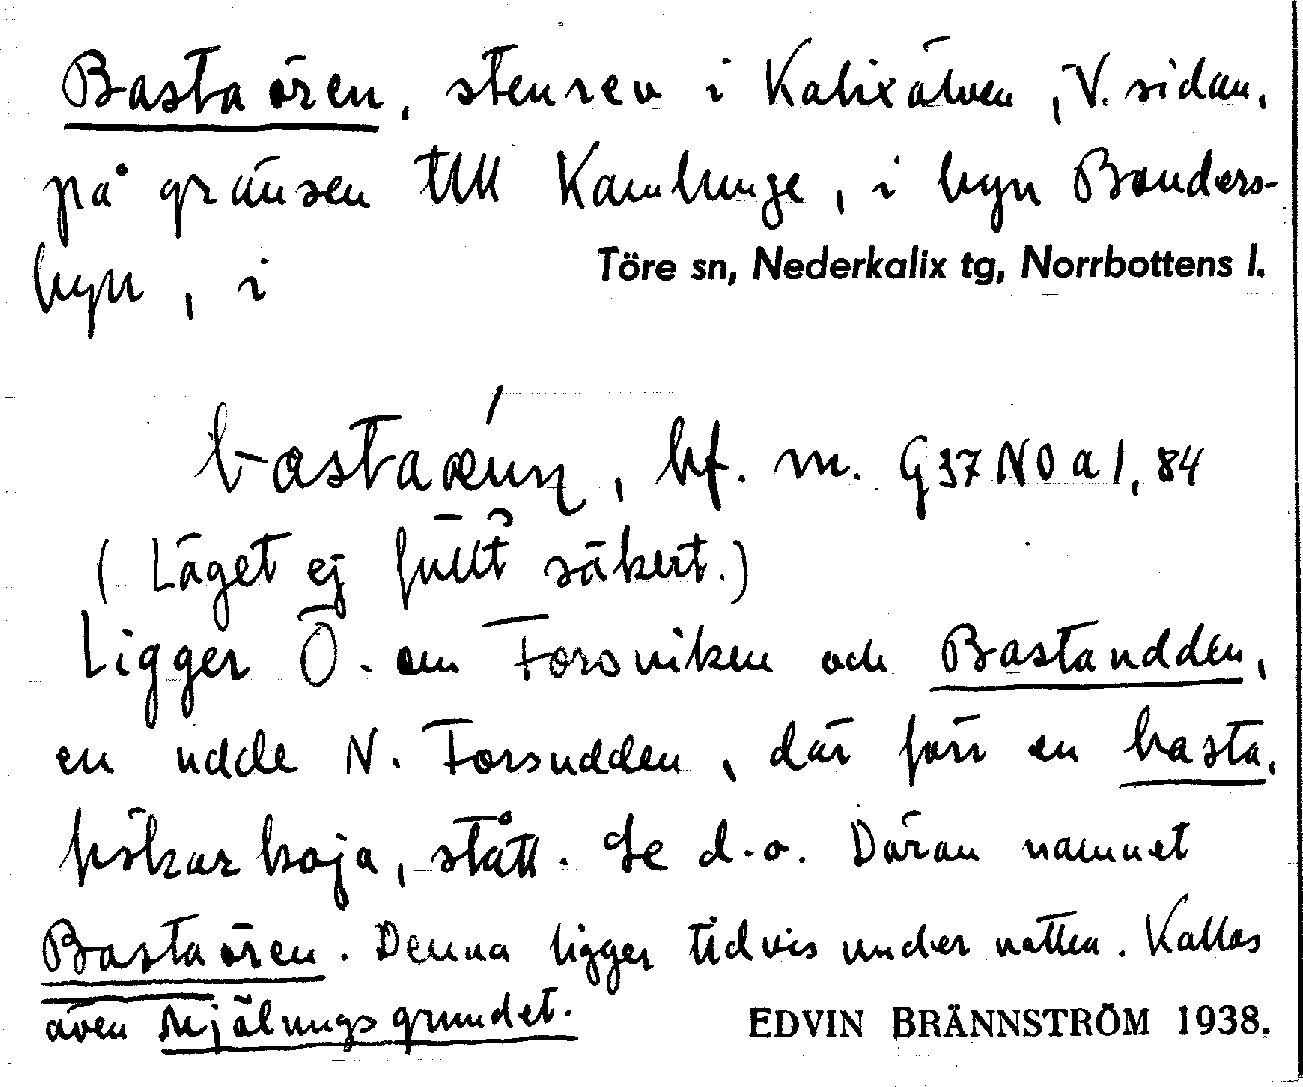 Bastaören, stenrev i Kalixälven, V. sidan,
på gränsen till Kamlunge, i byn Bonders-
byn, i Töre sn, Nederkalix tg, Norrbottens l.
bf. m. G37 NO a 1, 84
(Läget ej fullt säkert.)
Ligger Ö. om Forsviken och Bastaudden,
en udde N. Forsudden, där förr en basta,
pörkarkoja, stått. Se d.o. Därav namnet
Bastaören. Denna ligger tidvis under vatten. Kallas
även Mjölnungsgrundet.
EDVIN BRÄNNSTRÖM 1938.